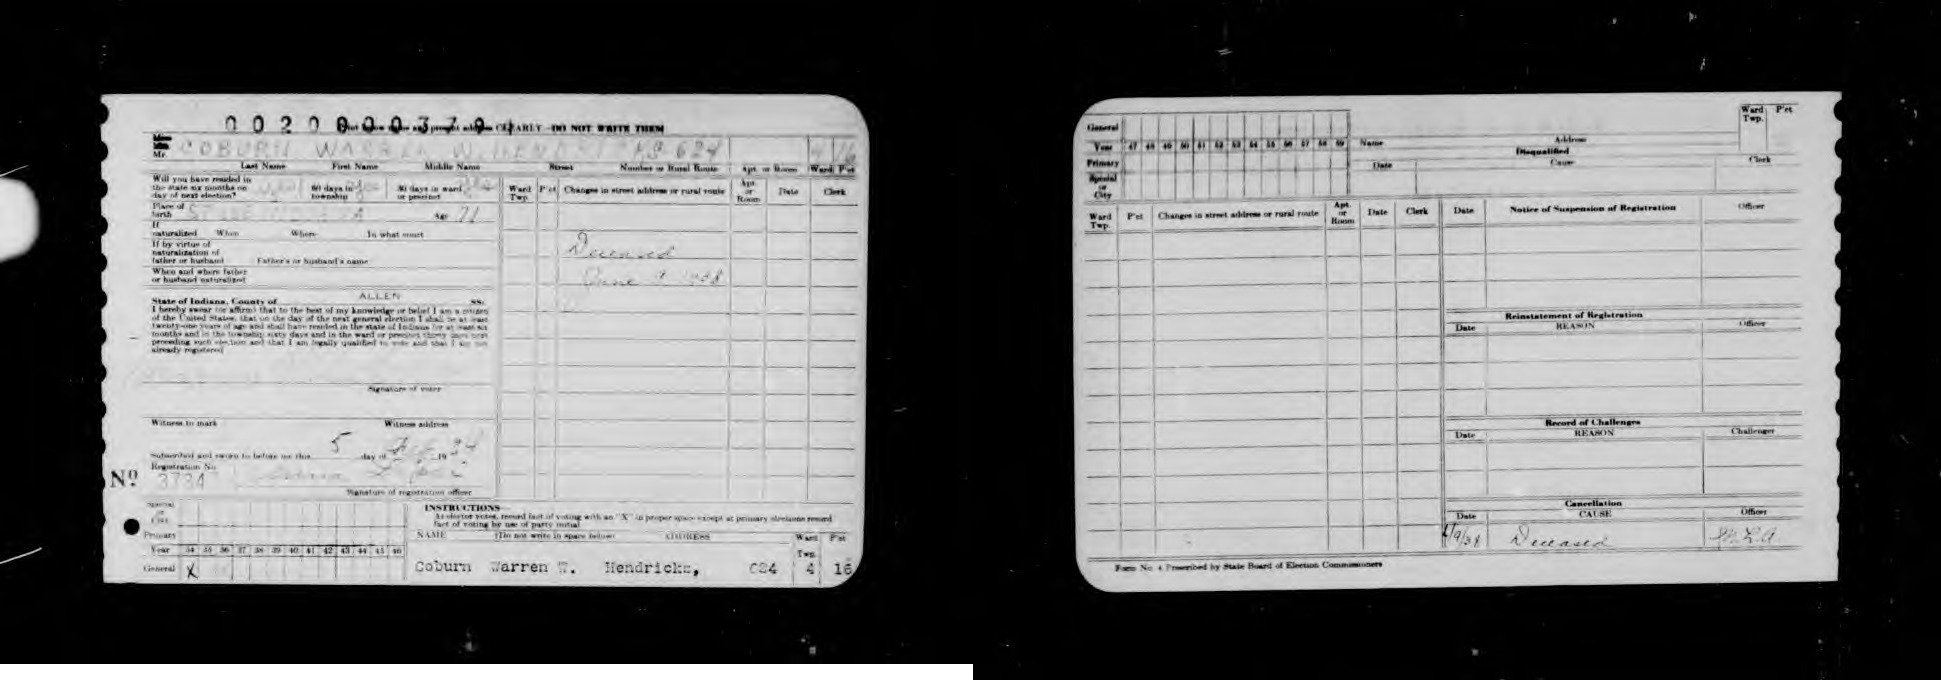 0 0 2 0 0 0 0 3 7 9
CLEARLY—DO NOT WRITE THEM
Mr. COBURN WARREN W. HENDRICKS 624 4 16
Last Name First Name Middle Name Street Number or Rural Route Apt. or Room Ward P'ct
Will you have resided in
the state six months on 60 days in 30 days in ward
day of next election? township or precinct
Ward Twp. P'ct Changes in street address or rural route Apt. or Room Date Clerk
Place of
birth Age 71
If
naturalized When Where In what court
If by virtue of
naturalization of
father or husband Father's or husband's name
Deceased
When and where father
or husband naturalized
June 9 1938
State of Indiana, County of ALLEN SS:
I hereby swear (or affirm) that to the best of my knowledge or belief I am a citizen
of the United States, that on the day of the next general election I shall be at least
twenty-one years of age and shall have resided in the state of Indiana for at least six
months and in the township sixty days and in the ward or precinct thirty days next
preceding such election and that I am legally qualified to vote and that I am not
already registered
Signature of voter
Witness to mark Witness address
Subscribed and sworn to before me this 5 day of 19 34
Registration No.
No 3734
Signature of registration officer
Special or City
Primary
Year 34 35 36 37 38 39 40 41 42 43 44 45 46
General X
INSTRUCTIONS—
As elector votes, record fact of voting with an "X" in proper space except at primary elections record
fact of voting by use of party initial
NAME (Do not write in space below) ADDRESS Ward Twp. P'ct
Coburn Warren W. Hendricks, 624 4 16
General
Year 47 48 49 50 51 52 53 54 55 56 57 58 59
Primary
Special or City
Name Address
Ward Twp. P'ct
Disqualified
Date Cause Clerk
Ward Twp. P'ct Changes in street address or rural route Apt. or Room Date Clerk
Date Notice of Suspension of Registration Officer
Reinstatement of Registration
Date REASON Officer
Record of Challenges
Date REASON Challenger
Cancellation
Date CAUSE Officer
6/9/38 Deceased
Form No. 4 Prescribed by State Board of Election Commissioners